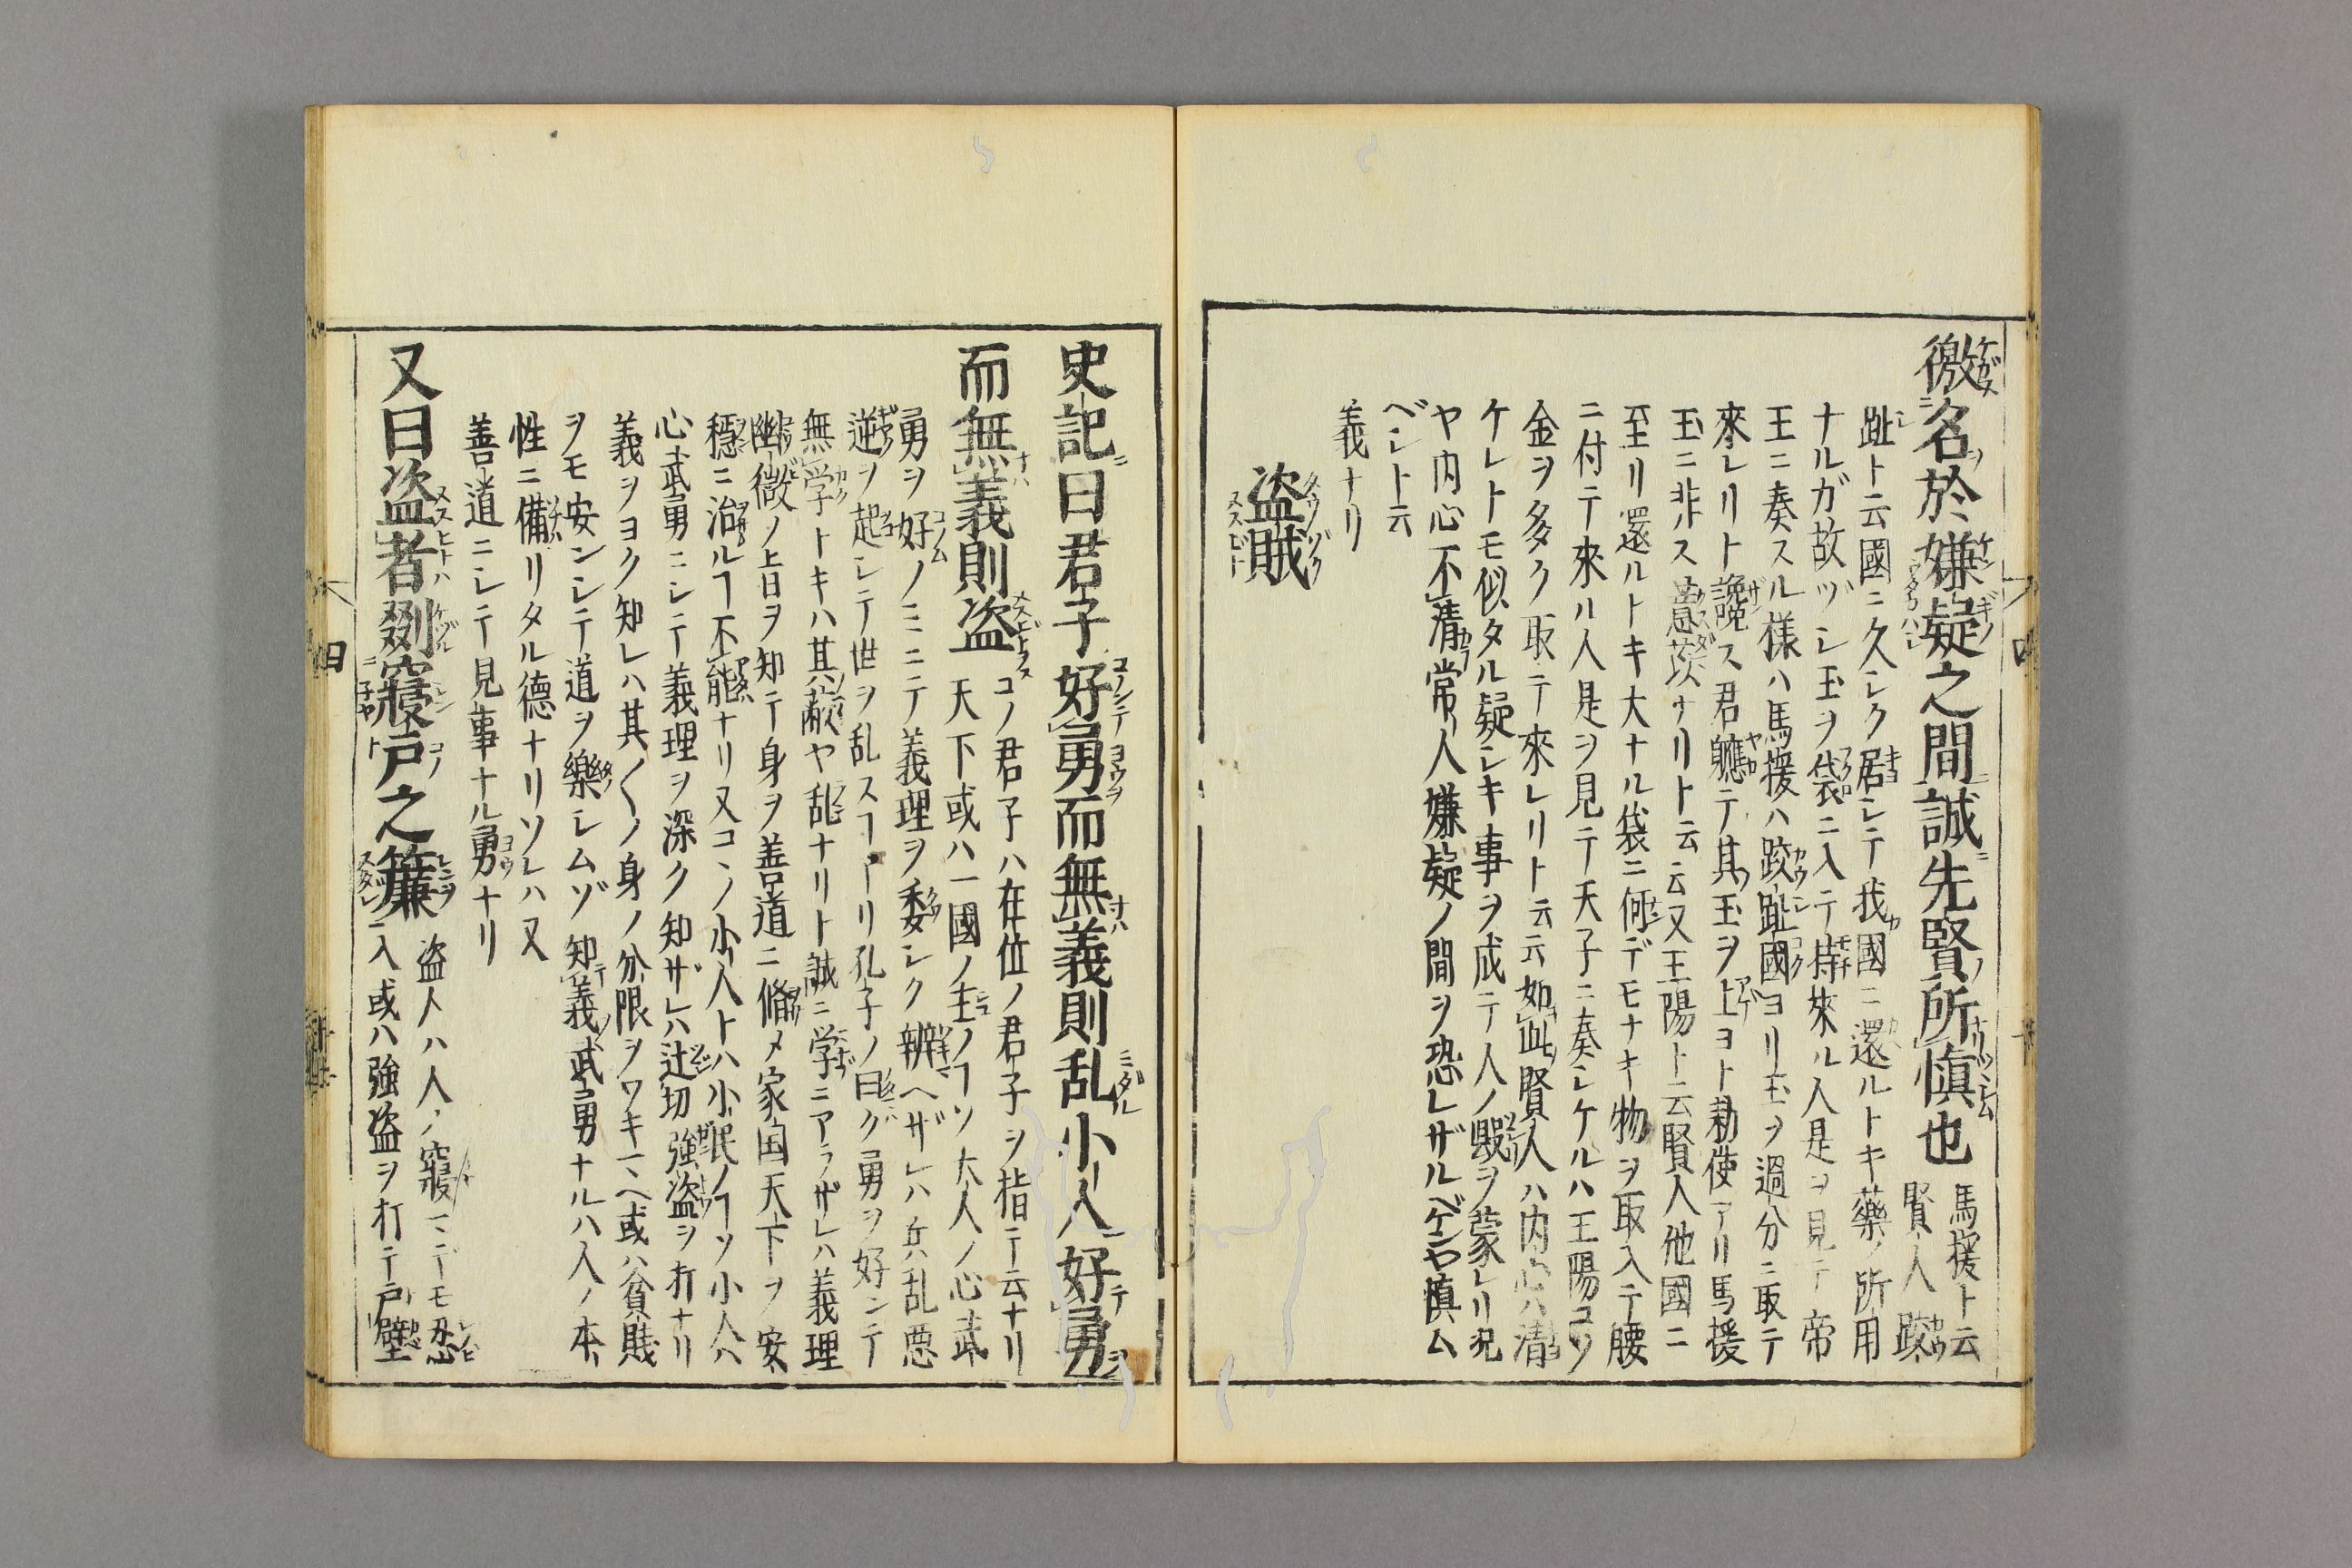 徼名於嫌疑之間誠先賢所慎也 馬援ト云
賢人跤
趾ト云國ニ久シク居シテ我國ニ還ルトキ藥ノ所用
ナルガ故ヅシ玉ヲ袋ニ入テ持來ル人是ヲ見テ帝
王ニ奏スル様ハ馬援ハ跤趾國ヨリ玉ヲ過分ニ取テ
來レリト讒ス君軈テ其玉ヲ上ヨト勅使アリ馬援
玉ニ非ス薏苡ナリト云云又王陽ト云賢人他國ニ
至リ還ルトキ大ナル袋ニ何デモナキ物ヲ取入テ腰
ニ付テ來ル人是ヲ見テ天子ニ奏シケルハ王陽コソ
金ヲ多ク取テ來レリト云云如此賢人ハ内心ハ清
ケレトモ似タル疑シキ事ヲ成テ人ノ毀ヲ蒙レリ况
ヤ内心不清常ノ人嫌疑ノ間ヲ恐レザルベケンヤ慎ム
ベシト云
義ナリ
盗賊
史記曰君子好勇而無義則乱小人好勇
而無義則盗 コノ君子ハ在位ノ君子ヲ指テ云ナリ
天下或ハ一國ノ主ノヿソ大人ノ心武
勇ヲ好ノミニテ義理ヲ委シク辨ヘザレハ兵乱悪
逆ヲ起シテ世ヲ乱スヿアリ孔子ノ曰ク勇ヲ好ンテ
無学トキハ其蔽ヤ乱ナリト誠ニ学ニアラザレハ義理
幽微ノ旨ヲ知テ身ヲ善道ニ脩メ家国天下ヲ安
穏ニ治ルヿ不能ナリ又コヽノ小人トハ小民ノヿソ小人ハ
心武勇ニシテ義理ヲ深ク知ザレハ辻切強盗ヲ打ナリ
義ヲヨク知レハ其〱ノ身ノ分限ヲワキマヘ或ハ貧賎
ヲモ安ンシテ道ヲ樂シムゾ知義武勇ナルハ人ノ本
性ニ備リタル德ナリソレハ又
善道ニシテ見事ナル勇ナリ
又曰盗者剟寢戸之簾 盗人ハ人ノ寢マデモ忍
入或ハ強盗ヲ打テ戸壁